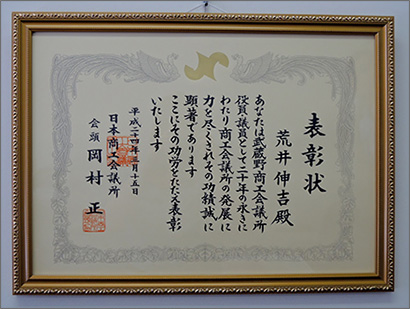 表彰状
荒井伸吉殿
あなたは武蔵野商工会議所
役員議員として二十年の永きに
わたり商工会議所の発展に
力を尽くされその功績誠に
顕著であります
ここにその功労をたたえ表彰
いたします
平成二十四年三月十五日
日本商工会議所
会頭 岡村正